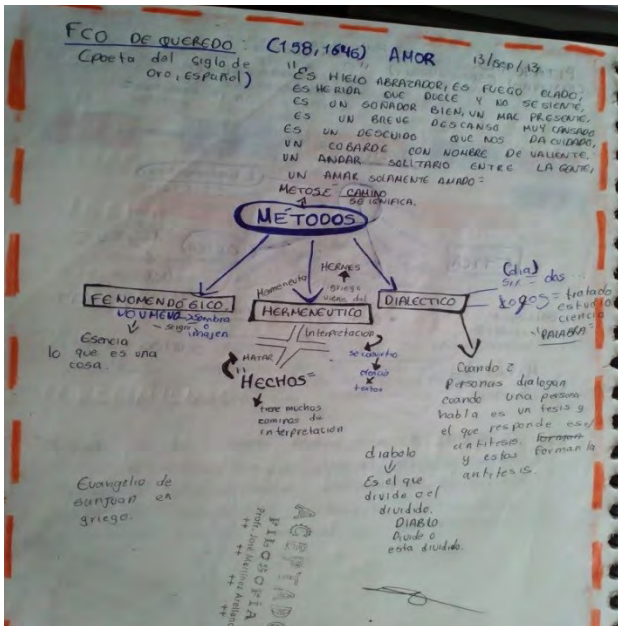 FCO DE QUEREDO: (158,1646) AMOR 13/sep/13
(poeta del siglo de
Oro, Español)
"ES HIELO ABRAZADOR, ES FUEGO ELADO,
ES HERIDA QUE DUELE Y NO SE SIENTE,
ES UN SOÑADOR BIEN, UN MAL PRESENTE.
ES UN BREVE DESCANSO MUY CANSADO
ES UN DESCUIDO QUE NOS DA CUIDADO,
UN COBARDE CON NOMBRE DE VALIENTE.
UN ANDAR SOLITARIO ENTRE LA GENTE,
UN AMAR SOLAMENTE AMADO=
CAMINO
SE IGNIFICA.
MÉTODOS
FENOMENDÓGICO
sombra
o
imajen
Esencia
lo que es una
cosa.
Hermeneuta
HERMES
griego
viene del
HERMENEUTICO
Interpretacion
MATAR
"HECHOS=
tiene muchos
caminos de
interpretación
textos
DIALECTICO
(dia) = dos
Logos = tratado
estudio
ciencia
"PALABRA"
Cuando 2
Personas dialogan
cuando una persona
habla es un tesis y
el que responde es
antitesis.
y estas forman la
antitesis.
diabolo
Es el que
divide o el
dividido.
DIABLO
Divide o
esta dividido.
Evangelio de
sunjuan en
griego.
ACEPTADO
FILOSOFIA
Profr. José Martínez Arellano